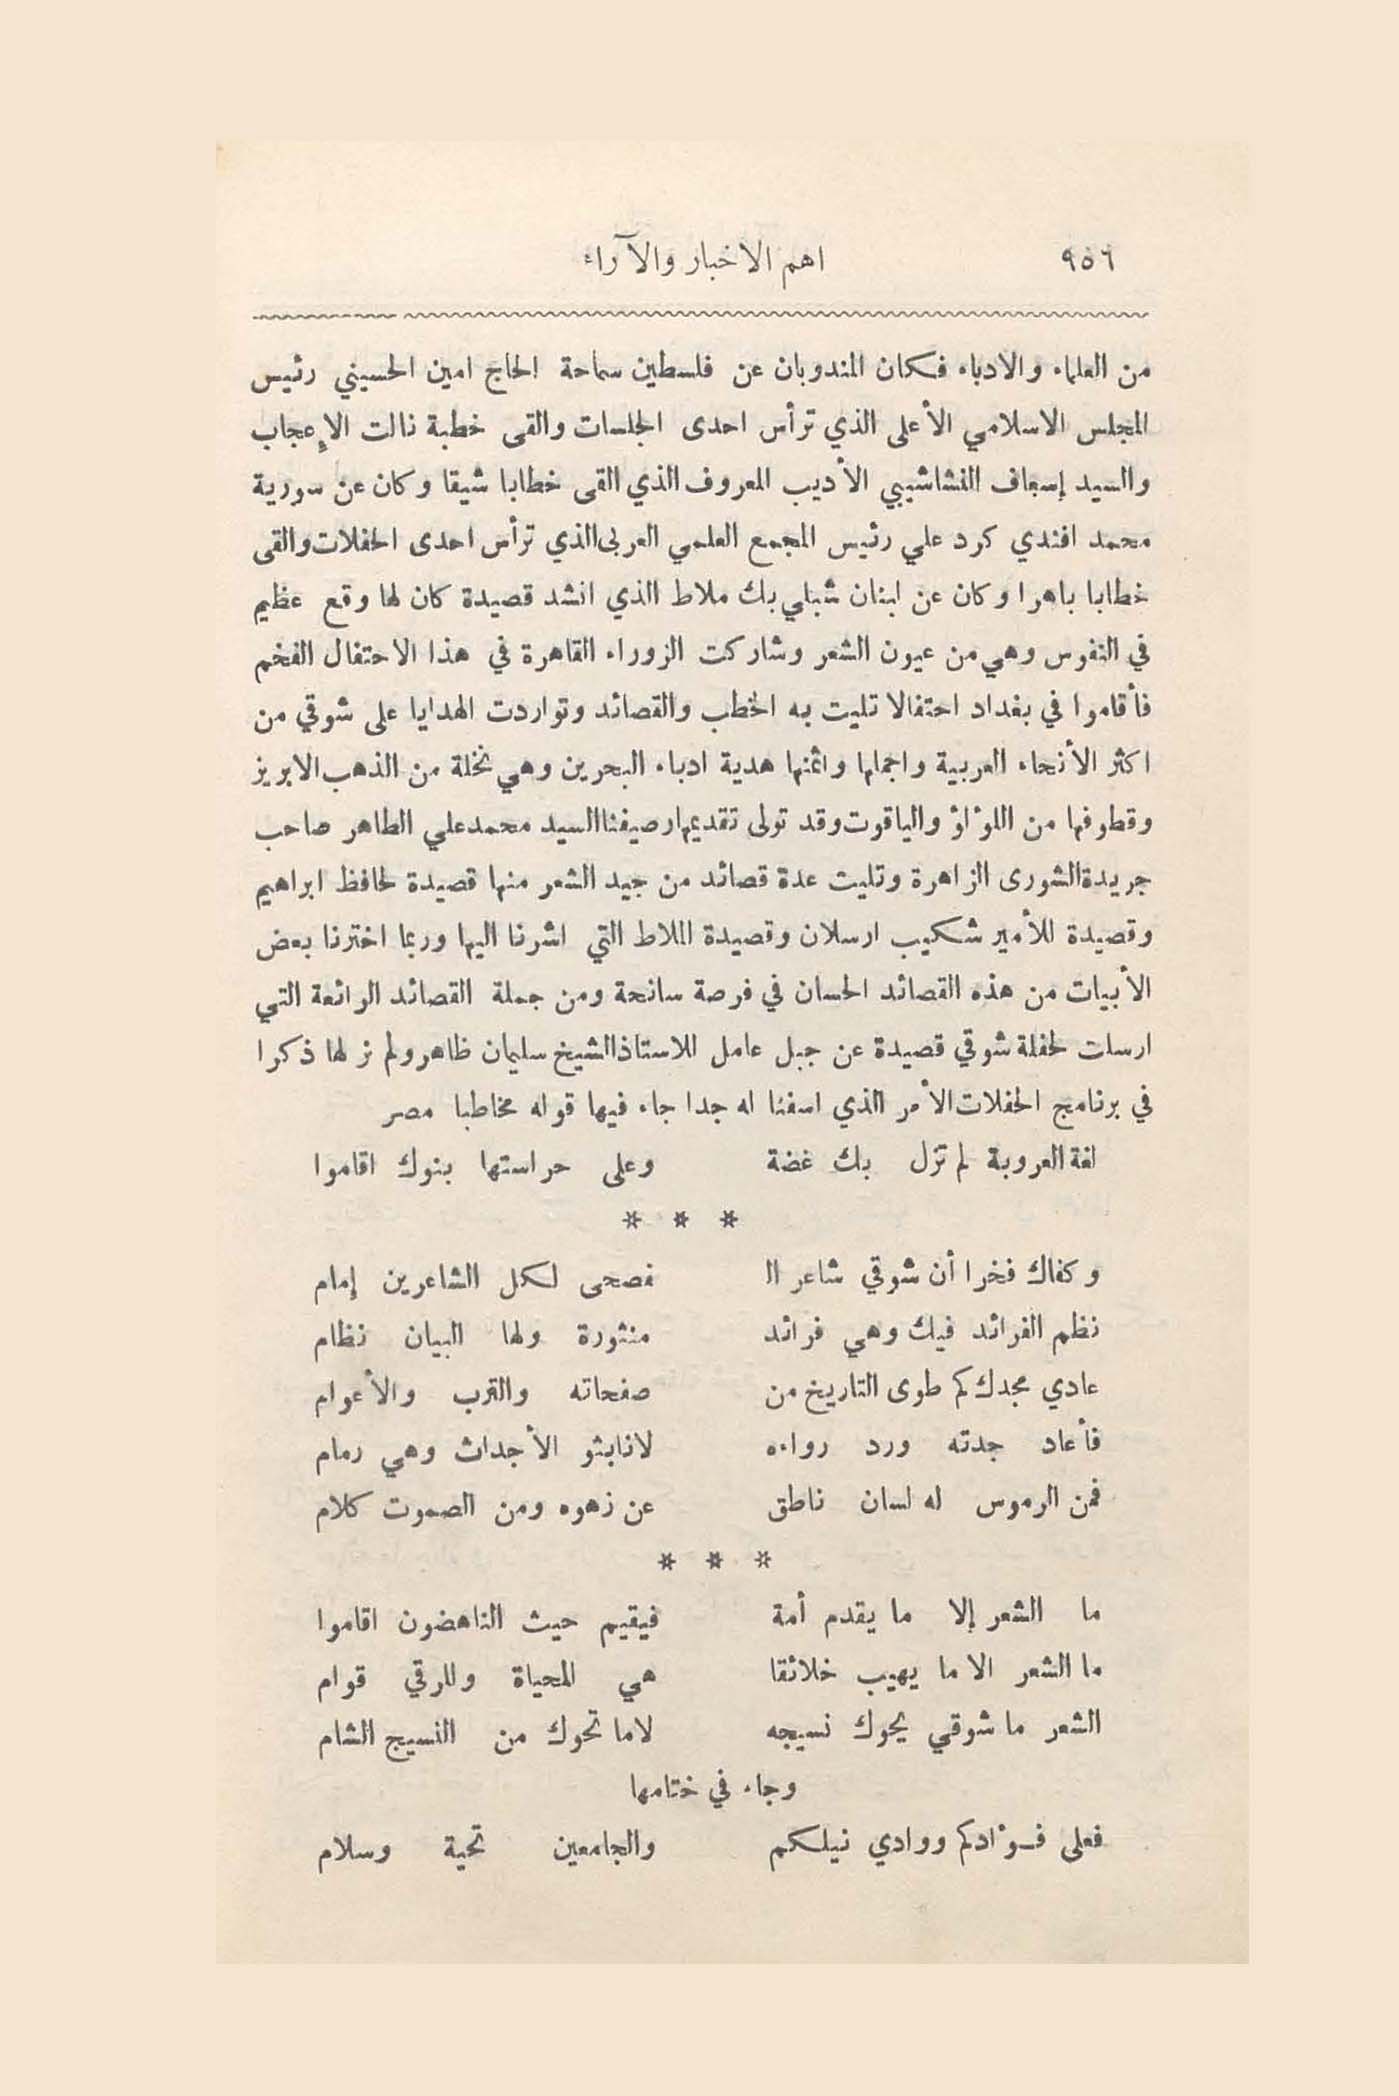 ٩٥٦
اهم الاخبار والآراء
من العلماء والادباء فكان المندوبان عن فلسطين سماحة الحاج امين الحسيني رئيس
المجلس الاسلامي الأعلى الذي ترأس احدى الجلسات والقى خطبة نالت الإعجاب
والسيد إسعاف النشاشيبي الأديب المعروف الذي القى خطابا شيقا وكان عن سورية
محمد افندي كرد علي رئيس المجمع العلمي العربي الذي ترأس احدى الحفلات والقى
خطابا باهرا وكان عن لبنان شبلي بك ملاط الذي انشد قصيدة كان لها وقع عظيم
في النفوس وهي من عيون الشعر وشاركت الزوراء القاهرة في هذا الاحتفال الفخم
فأقاموا في بغداد احتفالا تليت به الخطب والقصائد وتواردت الهدايا على شوقي من
اكثر الأنحاء العربية واجملها واثمنها هدية ادباء البحرين وهي نخلة من الذهب الابريز
وقطوفها من اللؤلؤ والياقوت وقد تولى تقديمها رصيفنا السيد محمد علي الطاهر صاحب
جريدة الشورى الزاهرة وتليت عدة قصائد من جيد الشعر منها قصيدة لحافظ ابراهيم
وقصيدة للأمير شكيب ارسلان وقصيدة الملاط التي اشرنا اليها وربما اخترنا بعض
الأبيات من هذه القصائد الحسان في فرصة سانحة ومن جملة القصائد الرائعة التي
ارسلت لحفلة شوقي قصيدة عن جبل عامل للاستاذ الشيخ سليمان ظاهر ولم نر لها ذكرا
في برنامج الحفلات الأمر الذي اسفنا له جدا جاء فيها قوله مخاطبا مصر
لغة العروبة لم تزل بك غضة وعلى حراستها بنوك اقاموا
* * *
وكفاك فخرا أن شوقي شاعر ال فصحى لكل الشاعرين إمام
نظم الفرائد فيك وهي فرائد منثورة ولها البيان نظام
عادي مجدك كم طوى التاريخ من صفحاته والترب والأعوام
فأعاد جدته ورد رواءه لانابثو الأجداث وهي رمام
فمن الرموس له لسان ناطق عن زهوه ومن الصموت كلام
* * *
ما الشعر إلا ما يقدم أمة فيقيم حيث الناهضون اقاموا
ما الشعر الا ما يهيب خلائقا هي للحياة وللرقي قوام
الشعر ما شوقي يحوك نسيجه لا ما تحوك من النسيج الشام
وجاء في ختامها
فعلى فؤادكم ووادي نيلكم والجامعين تحية وسلام